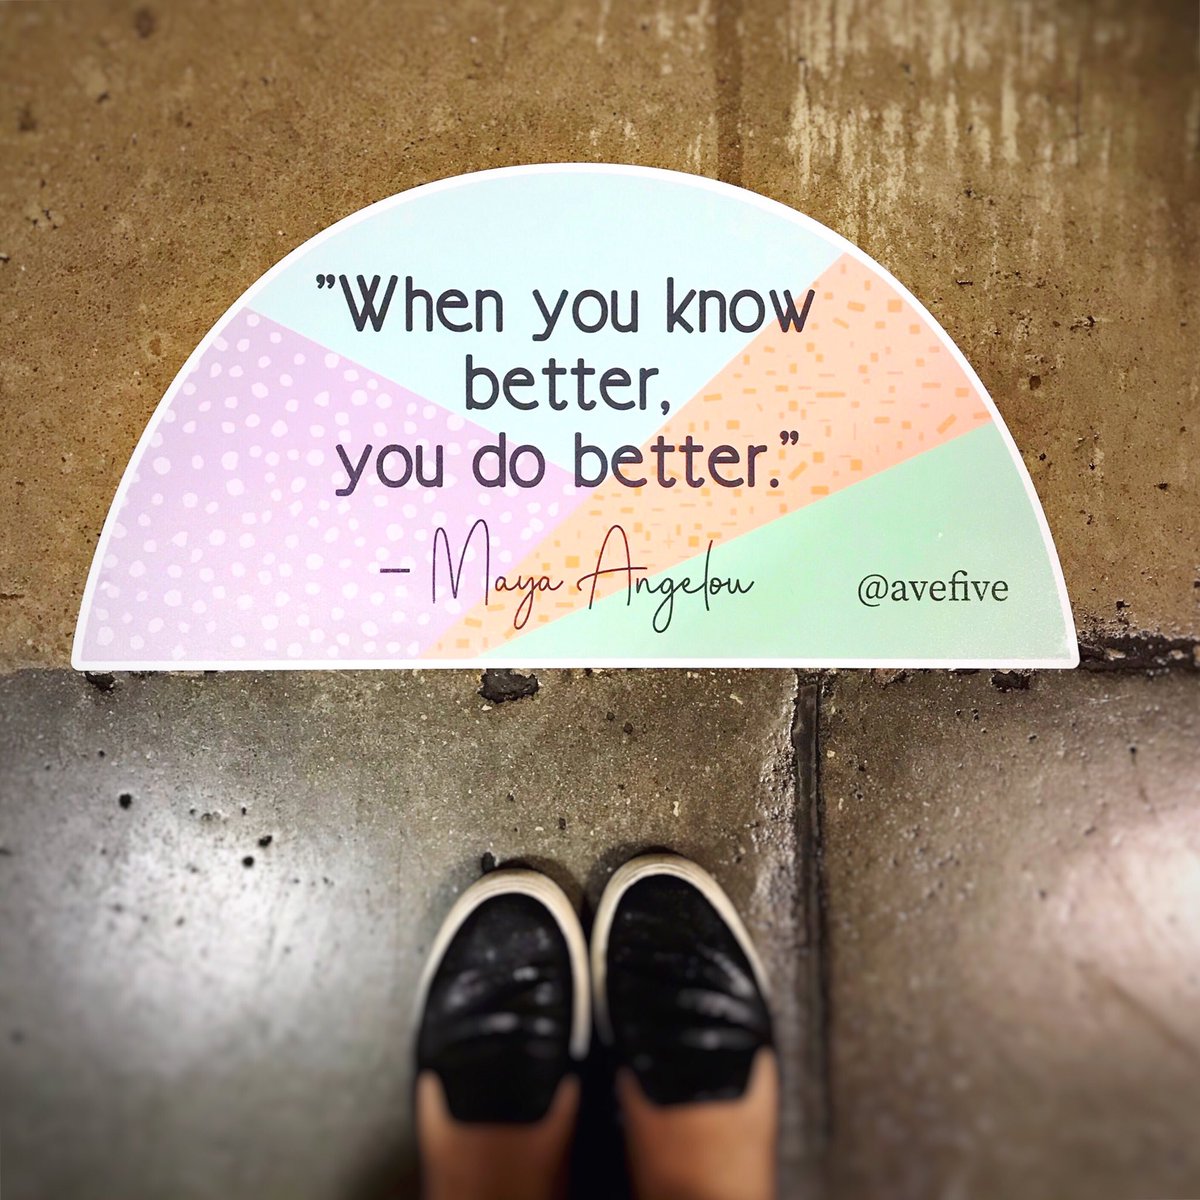 ”When you know
better,
you do better.”
– Maya Angelou
@avefive